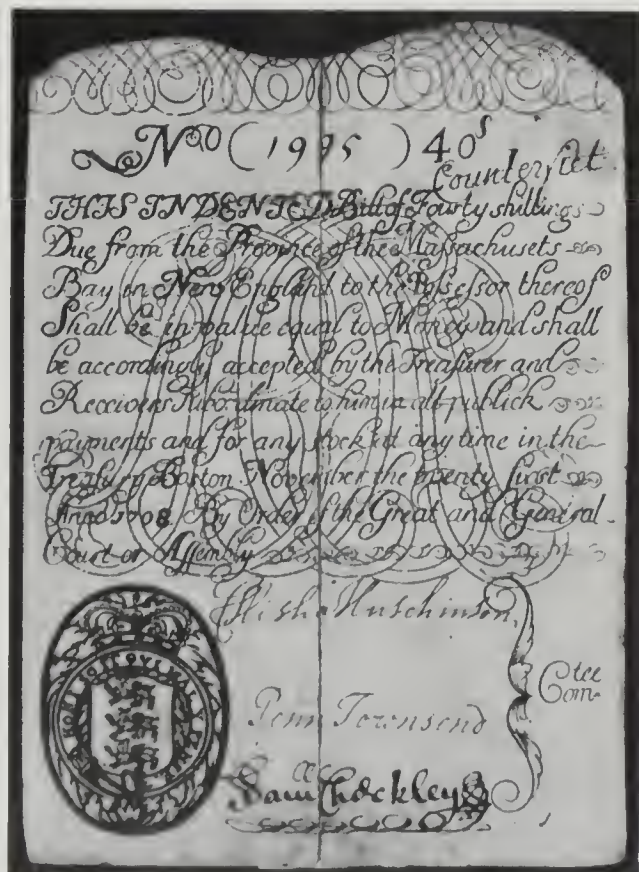 No (1995) 40s
Counterfict
THIS INDENTED Bill of Fourty shillings
Due from the Province of the Massachusets
Bay in New England to the Possessor thereof
Shall be in value equal to Money and shall
be accordingly accepted by the Treasurer and
Receivers Subordinate to him in all publick
payments and for any Stock at any time in the
Treasury Boston November the twenty first
Anno 1708 By Order of the Great and General
Court or Assembly
Elisha Hutchinson
Penn Townsend
Sam Checkley
Comtee
HONI SOIT QVI MAL Y PENSE